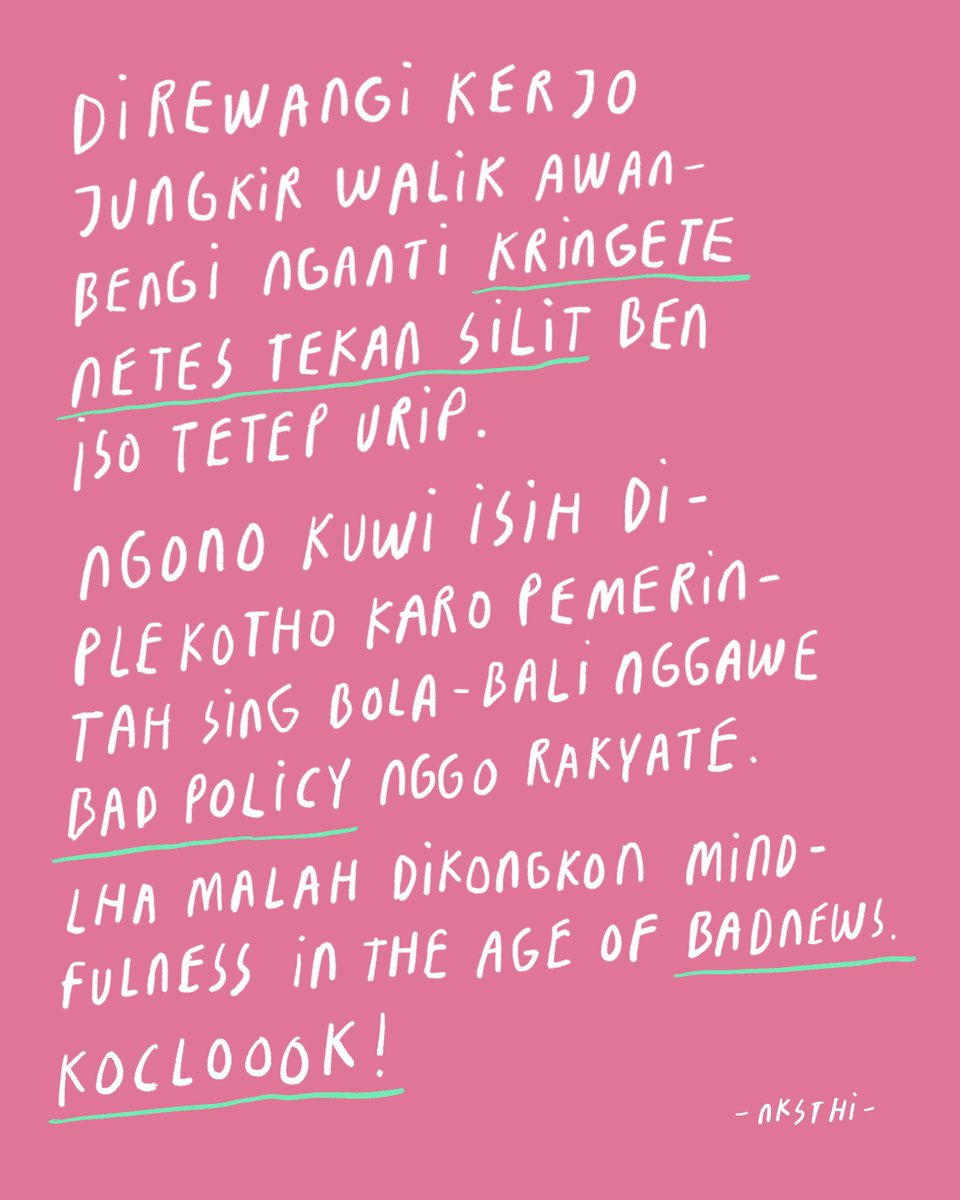 DiREWANGi KERJO
JUNGKiR WALiK AWAN-
BENGi NGANTi KRiNGETE
NETES TEKAN SiLiT BEN
iSO TETEP URiP.
NGONO KUWi iSiH Di-
PLEKOTHO KARO PEMERiN-
TAH SiNG BOLA-BALi NGGAWE
BAD POLiCY NGGO RAKYATE.
LHA MALAH DiKONGKON MiND-
FULNESS iN THE AGE OF BADNEWS.
KOCLOOOK!
-NKSTHi-